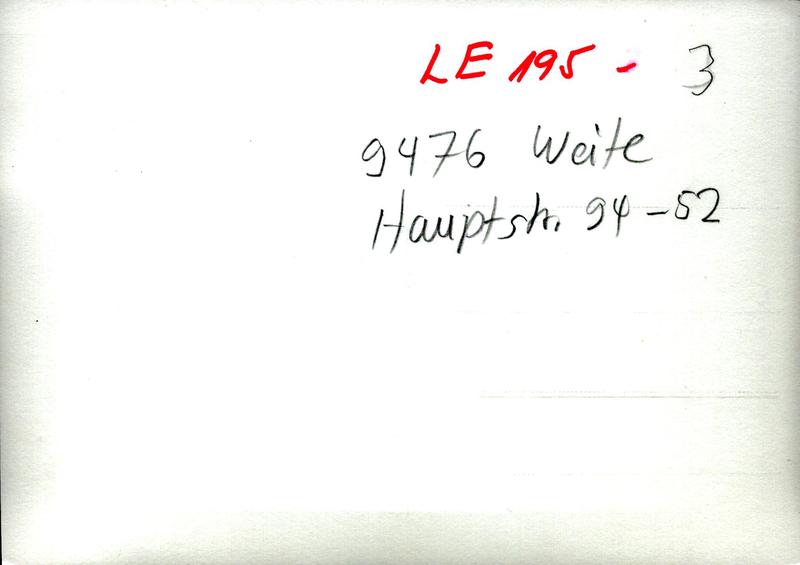 LE 195 - 3
9476 Weite
Hauptstr. 94-52